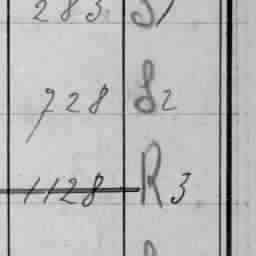 283 S1
728 S2
1128 R3